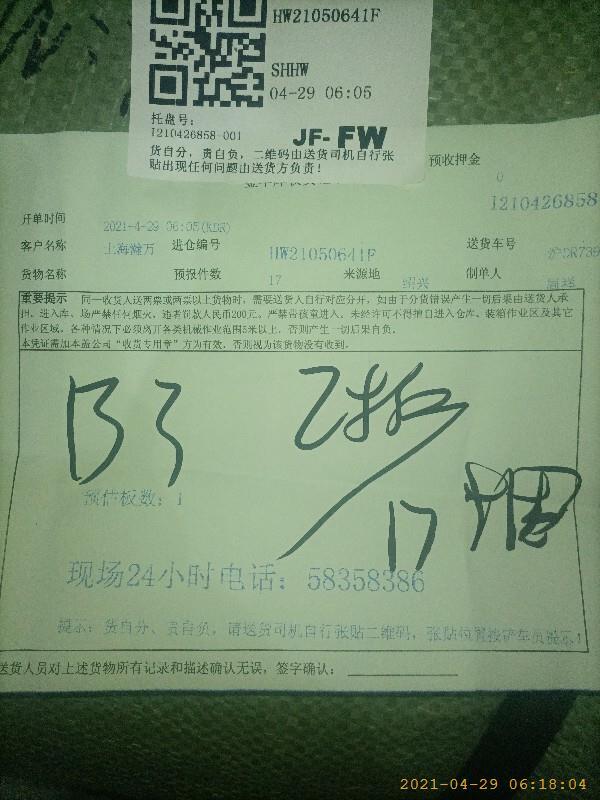 HW21050641F
SHHW
04-29 06:05
托盘号：
I210426858-001
JF-FW
货自分，责自负，二维码由送货司机自行张
贴出现任何问题由送货方负责！
预收押金
0
I210426858
开单时间 2021-4-29 06:05(KDR)
客户名称 上海瀚万 进仓编号 HW21050641F 送货车号
货物名称 预报件数 17 来源地 绍兴 制单人
重要提示 同一收货人送两票或两票以上货物时，需要送货人自行对应分开，如由于分货错误产生一切后果由送货人承
担。进入库、场严禁任何烟火，违者罚款人民币200元。严禁带孩童进入，未经许可不得擅自进入仓库、装箱作业区及其它
作业区域。各种情况下必须离开各类机械作业范围5米以上，否则产生一切后果自负。
本凭证需加本盖公司“收货专用章”方为有效，否则视为该货物没有收到。
B3
17
预估板数：1
现场24小时电话：58358386
提示：货自分、责自负，请送货司机自行张贴二维码，张贴位置按铲车员提示！
送货人员对上述货物所有记录和描述确认无误，签字确认：
2021-04-29 06:18:04